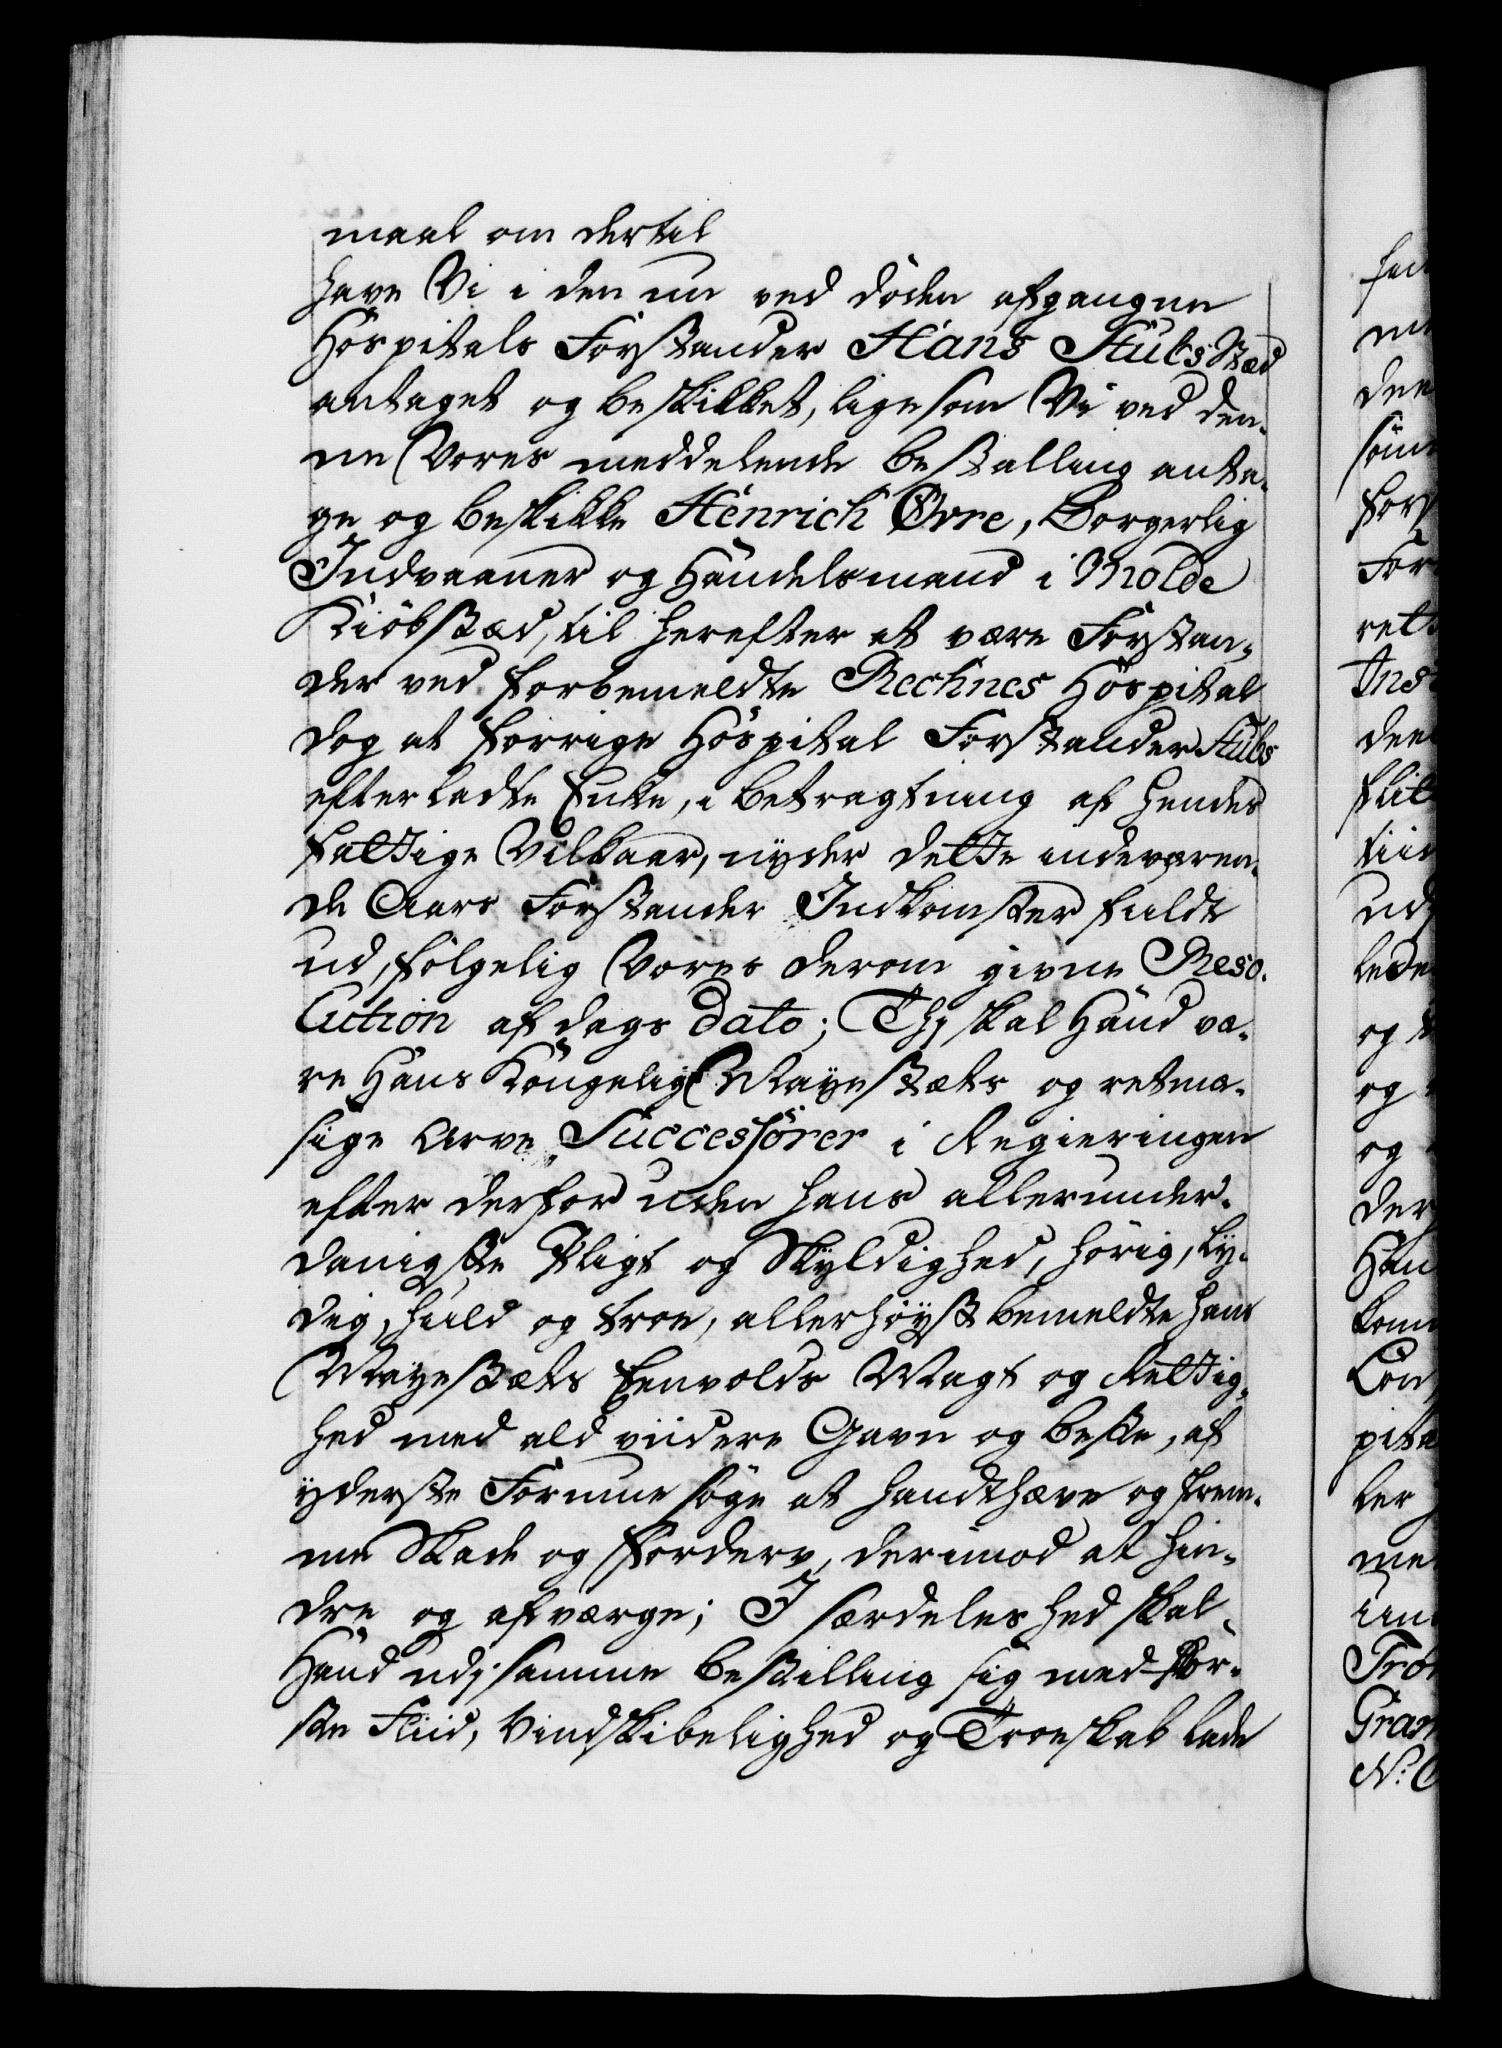 maal om dertil
have Vi i den nu ved døden afgangne
Hospitals Forstander Hans Stubs Stæd
antaget og beskikket, ligesom Vi ved den-
ne Vores meddelende bestalling anta-
ge og beskikke Henrich Øvre, Borgerlig
Indvaaner og Handelsmand i Molde
Kiøbstæd, til herefter at være Forstan-
der ved forbemeldte Rechnes Hospital
dog at forrige Hospital Forstander Stubs
efterladte Enke, i betragtning af hendes
fattige Vilkaar, nyder dette indeværen-
de Aars Forstander Indkomster fuldt
ud, følgelig Vores derom givne Reso-
lution af dags dato; Thj skal Hand væ-
re Hans Kongelige Mayestæts og retmæ-
sige Arve Successorer i Regieringen
efter derfor uden hans allerunder-
danigste Pligt og Skyldighed, hørig, ly-
dig, huld og troe, allerhøyst bemeldte hans
Mayestæts Eenvolds Magt og Rettig-
hed med ald viidere Gavn og beste, af
yderste Formue søge at handthæve og frem-
me Skade og Forderv, derimod at hin-
dre og afværge; I særdeleshed skal
Hand udj samme bestilling sig med stør-
ste Fliid, Vindskibelighed og Troeskab lade